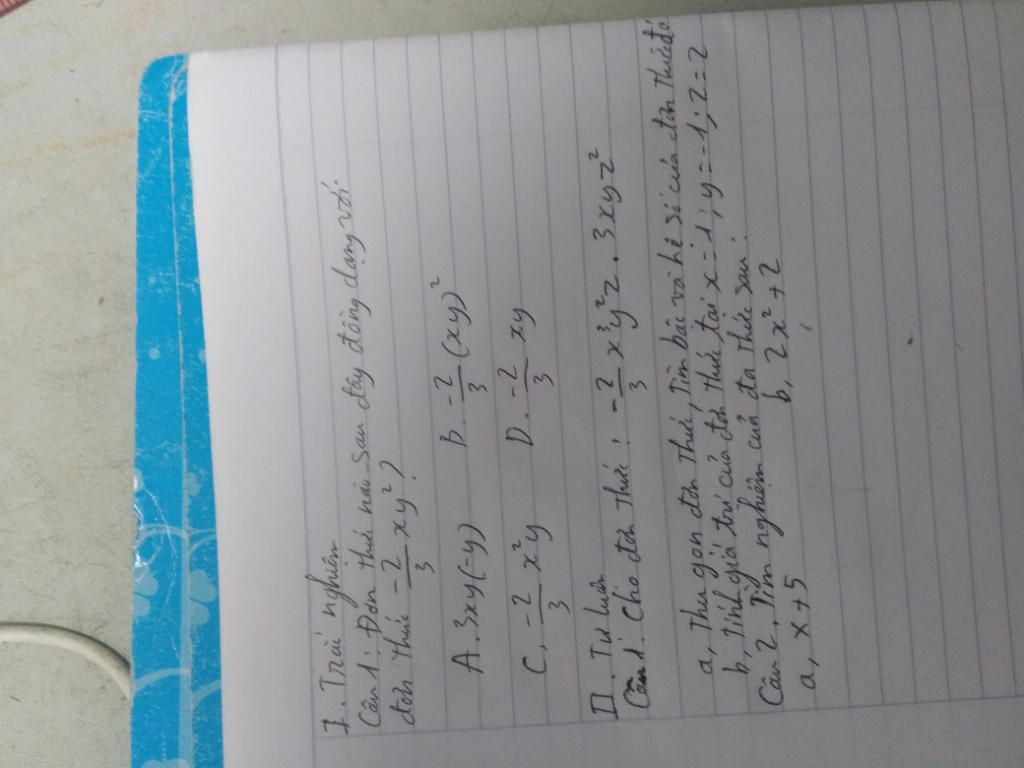 I. Trắc nghiệm
Câu 1: Đơn thức nào sau đây đồng dạng với
đơn thức -2/3 xy² ?
A. 3xy(-y) B. -2/3 (xy)²
C, -2/3 x²y D. -2/3 xy
II. Tự luận
Câu 1. Cho đơn thức : -2/3 x³y²z . 3xyz²
a, Thu gọn đơn thức, tìm bậc và hệ số của đơn thức đó
b, tính giá trị của đơn thức tại x = -1; y = -1; z = 2
Câu 2. Tìm nghiệm của đa thức sau :
a, x + 5 b, 2x² + 2